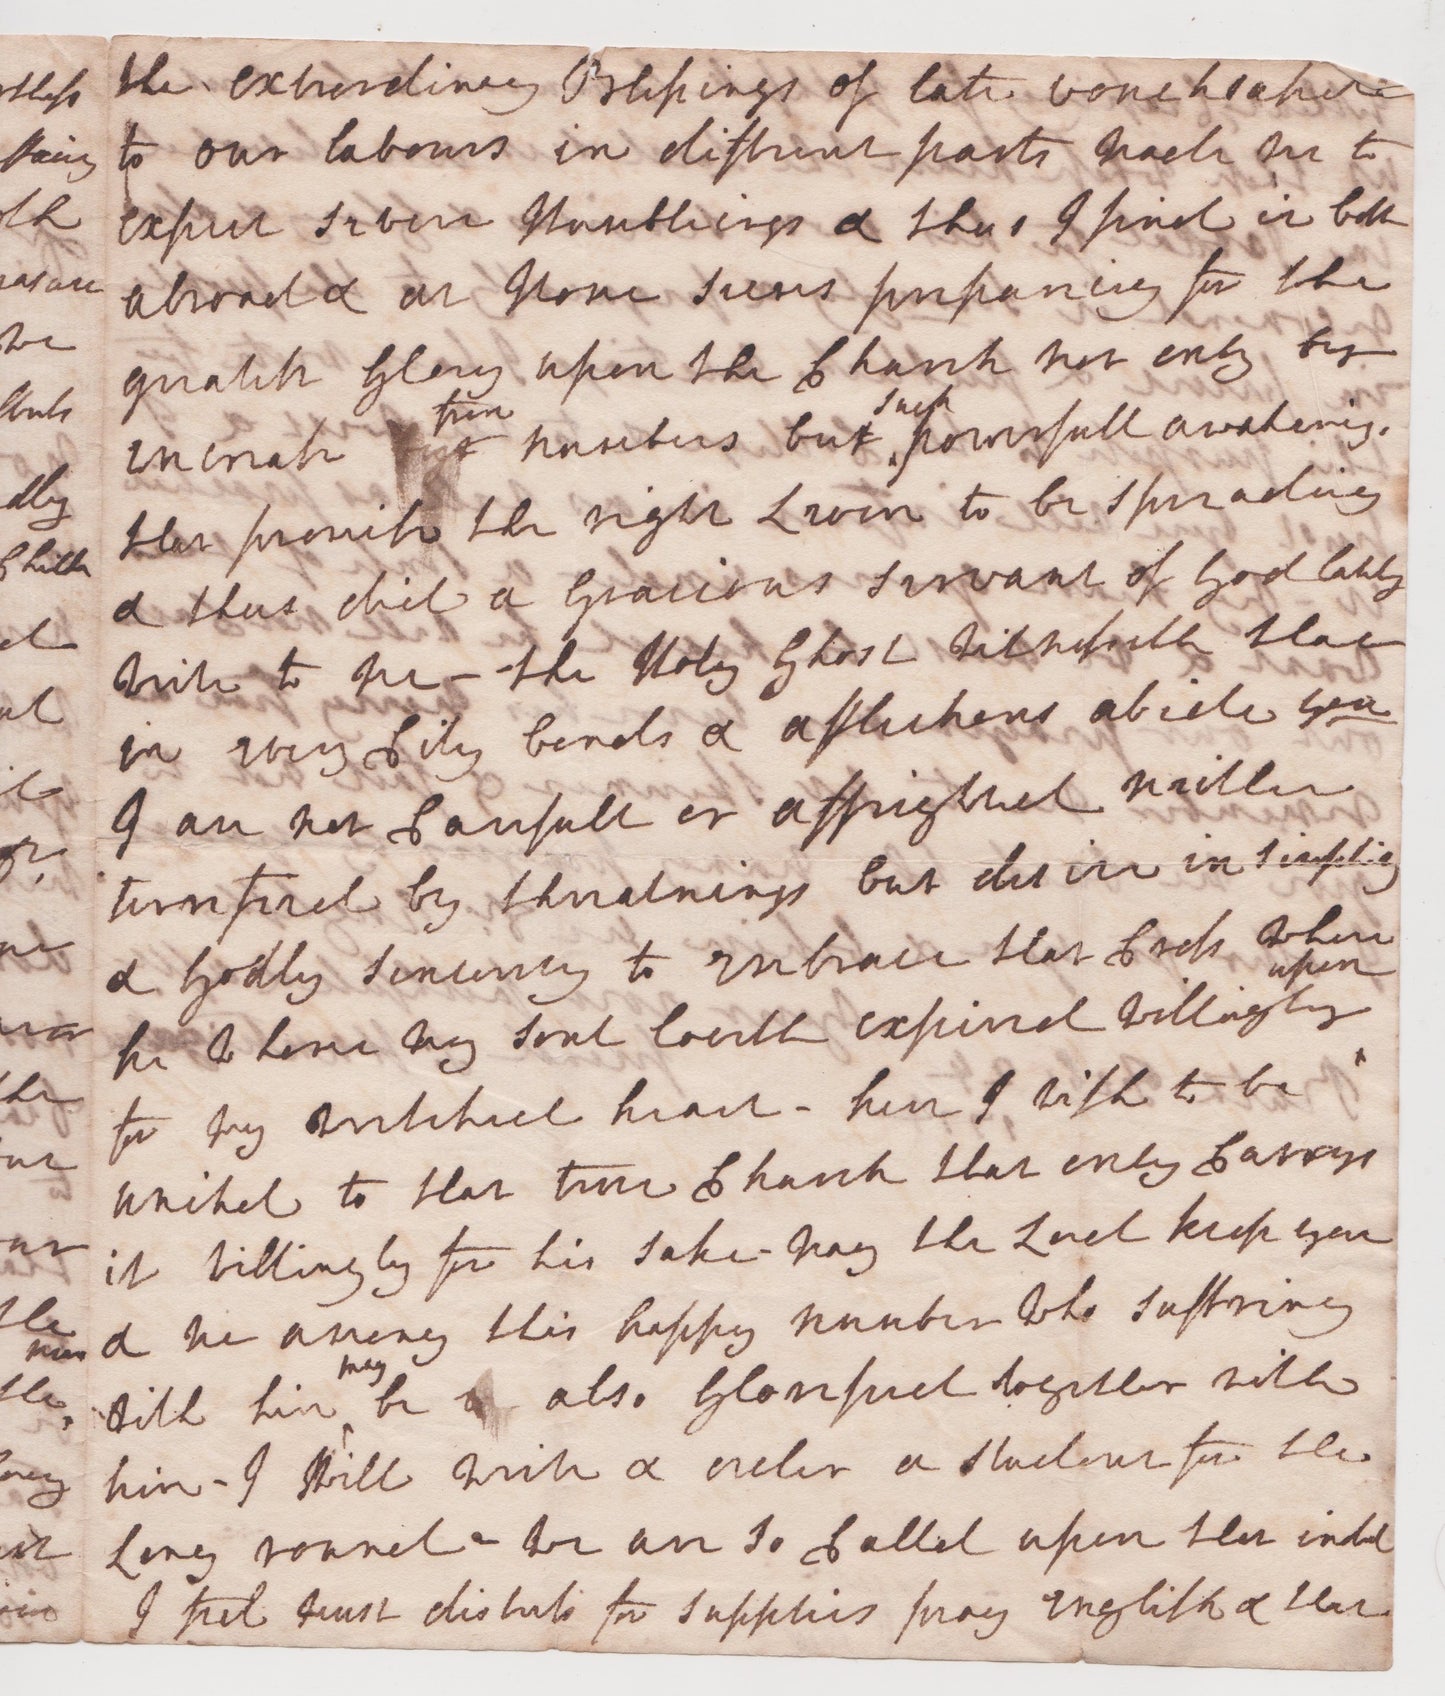 the extrordinery Blessings of late vouchsafed
to our labours in different parts made me to
expect severe Humblings & thus I find it both
abroad & at Home seems prepareing for the
greatest Glory upon the Church not only by
increase true numbers but such powerfull awakenings
that promise the right Leven to be spreading
& thus did a Gracious servant of God lately
write to me – the Holy Ghost witnesseth that
in every City bonds & afflictions abide you
I am not Carefull or affrighted neither
terrefied by threatnings but desire in simplicity
& Godly sincerity to embrace that Cross where
upon
he whome my soul loveth expired willingly
for my wretched heart – here I wish to be
united to that true Church that only Carrys
it willingly for his sake – may the Lord keep you
& me among this happy number who suffering
with him may be also Glorified together with
him – I will write & order a student for the
Long round – we are so Called upon that indeed
I feel most distrest for supplies pray English & that